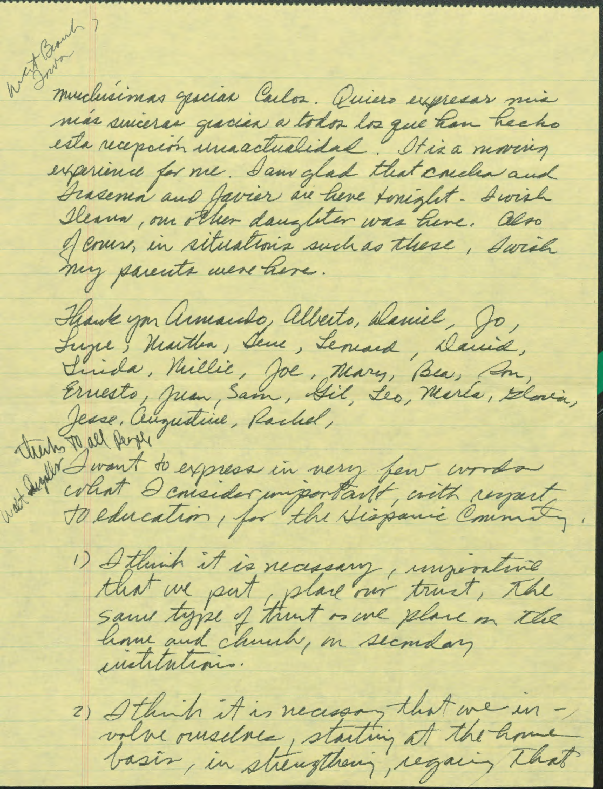 West Branch
Iowa
muchísimas gracias Carlos. Quiero expresar mis
más sinceras gracias a todos los que han hecho
esta recepción una actualidad. It is a moving
experience for me. I am glad that Concha and
Irasema and Javier are here tonight. I wish
Ileana, our other daughter was here. Also
of course, in situations such as these, I wish
my parents were here.
Thank you Armando, Alberto, Daniel, Jo,
Lupe, Martha, Gene, Leonard, David,
Linda, Millie, Joe, Mary, Bea, Ron,
Ernesto, Juan, Sam, Gil, Leo, María, Gloria,
Jesse, Augustine, Rachel,
thanks to all People
I want to express in very few words
what I consider important, with respect
to education, for the Hispanic Community.
1) I think it is necessary, imperative
that we put, place our trust, the
same type of trust as we place on the
home and church, on secondary
institutions.
2) I think it is necessary that we in-
volve ourselves, starting at the home
basis, in strengthing, regaing that